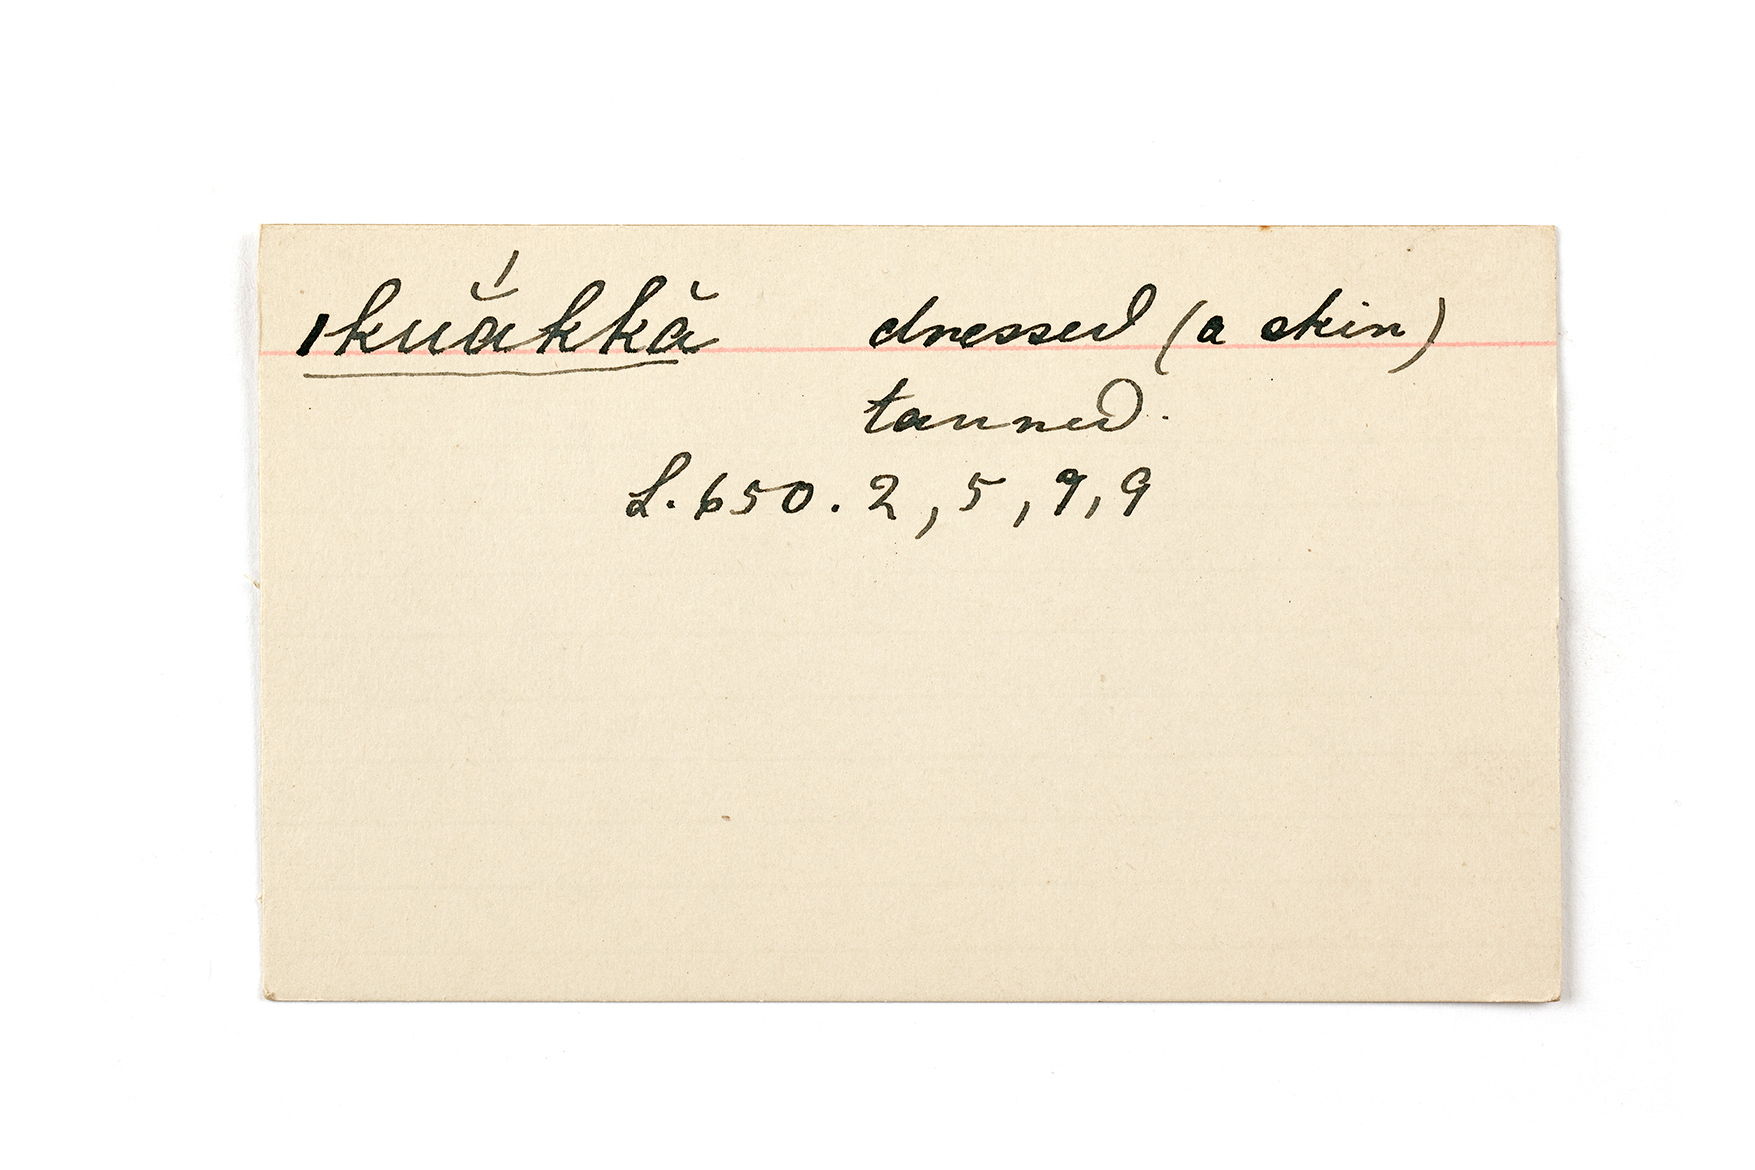 ıkuắkkă dressed (a skin)
tanned.
L. 650. 2, 5, 9, 9